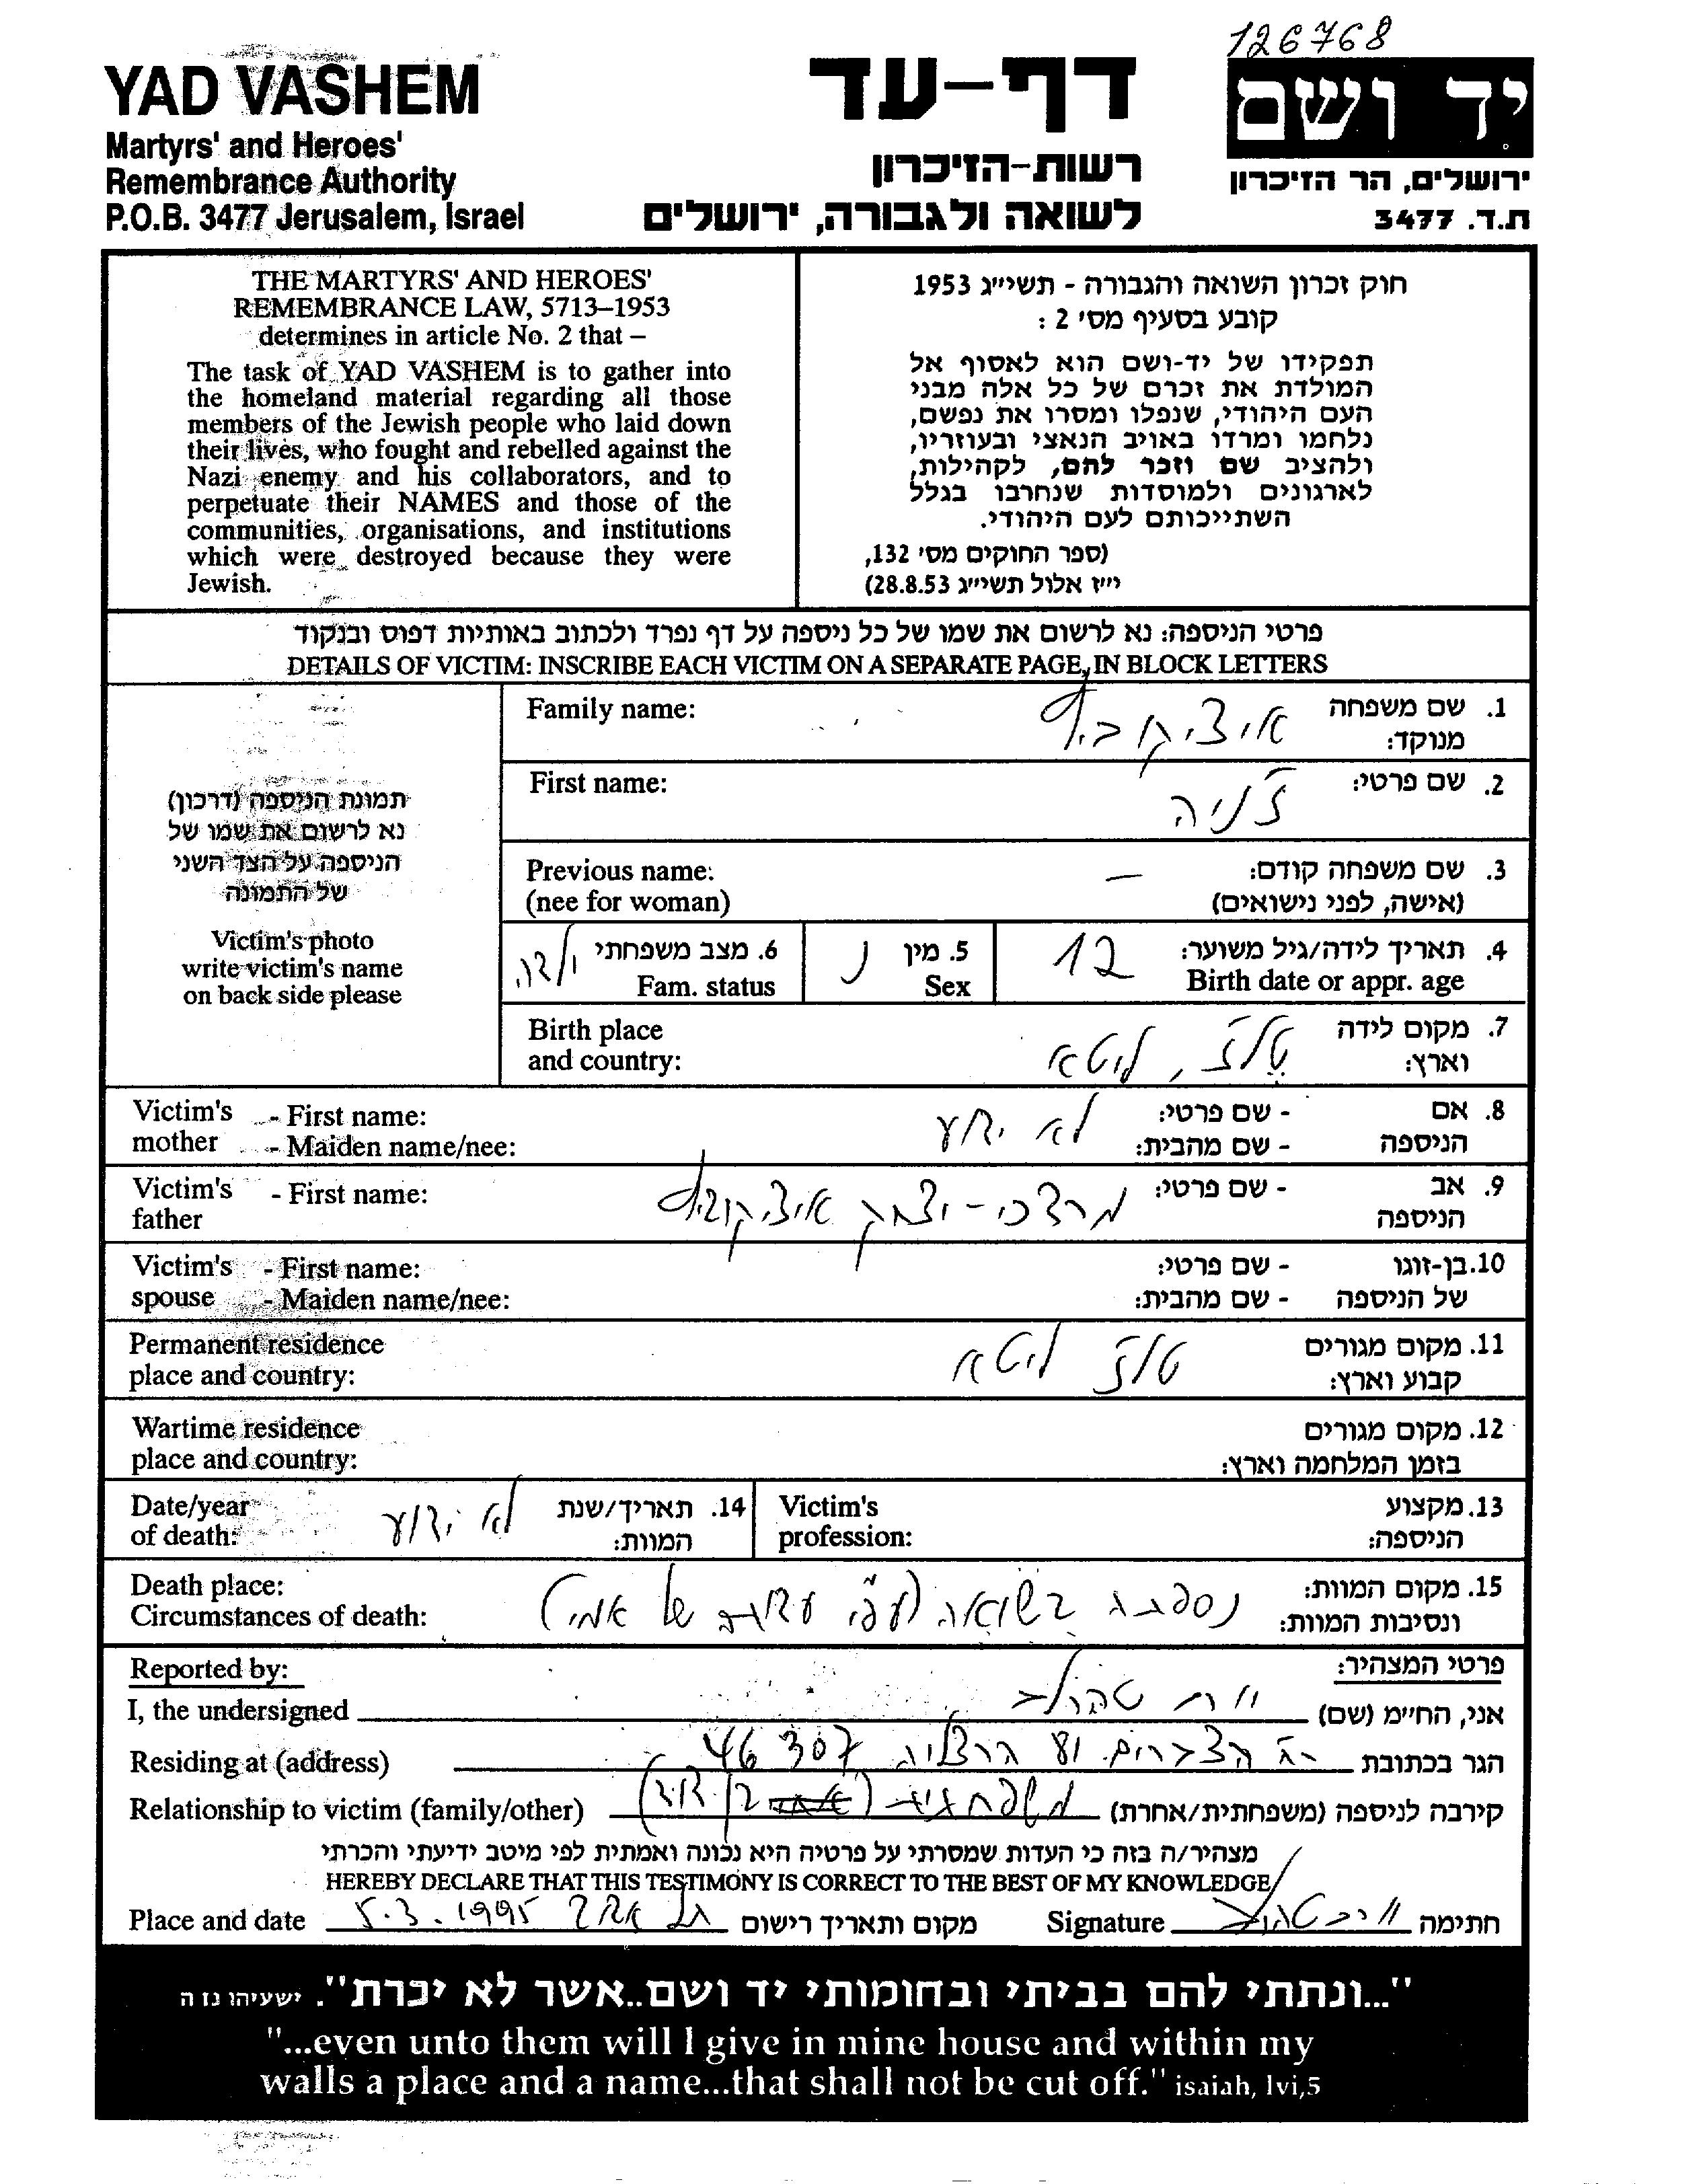 126768
YAD VASHEM
Martyrs' and Heroes'
Remembrance Authority
P.O.B. 3477 Jerusalem, Israel
דף-עד
רשות-הזיכרון
לשואה ולגבורה, ירושלים
יד ושם
ירושלים, הר הזיכרון
ת.ד. 3477
THE MARTYRS' AND HEROES'
REMEMBRANCE LAW, 5713–1953
determines in article No. 2 that –
The task of YAD VASHEM is to gather into
the homeland material regarding all those
members of the Jewish people who laid down
their lives, who fought and rebelled against the
Nazi enemy and his collaborators, and to
perpetuate their NAMES and those of the
communities, organisations, and institutions
which were destroyed because they were
Jewish.
חוק זכרון השואה והגבורה - תשי״ג 1953
קובע בסעיף מס' 2 :
תפקידו של יד-ושם הוא לאסוף אל
המולדת את זכרם של כל אלה מבני
העם היהודי, שנפלו ומסרו את נפשם,
נלחמו ומרדו באויב הנאצי ובעוזריו,
ולהציב שם וזכר להם, לקהילות,
לארגונים ולמוסדות שנחרבו בגלל
השתייכותם לעם היהודי.
(ספר החוקים מס' 132,
י״ז אלול תשי״ג 28.8.53)
פרטי הניספה: נא לרשום את שמו של כל ניספה על דף נפרד ולכתוב באותיות דפוס ובנקוד
DETAILS OF VICTIM: INSCRIBE EACH VICTIM ON A SEPARATE PAGE, IN BLOCK LETTERS
תמונת הניספה (דרכון)
נא לרשום את שמו של
הניספה על הצד השני
של התמונה
Victim's photo
write victim's name
on back side please
1. שם משפחה איציקוביץ Family name:
מנוקד:
2. שם פרטי: ז'ניה First name:
3. שם משפחה קודם: – Previous name:
(אישה, לפני נישואים) (nee for woman)
4. תאריך לידה/גיל משוער: 12 5. מין נ 6. מצב משפחתי ילדה
Birth date or appr. age Sex Fam. status
7. מקום לידה טלז, ליטא Birth place
וארץ: and country:
8. אם - שם פרטי: לא ידוע Victim's - First name:
הניספה - שם מהבית: mother - Maiden name/nee:
9. אב - שם פרטי: מרדכי-יצחק איציקוביץ Victim's - First name:
הניספה father
10. בן-זוגו - שם פרטי: Victim's - First name:
של הניספה - שם מהבית: spouse - Maiden name/nee:
11. מקום מגורים טלז ליטא Permanent residence
קבוע וארץ: place and country:
12. מקום מגורים Wartime residence
בזמן המלחמה וארץ: place and country:
13. מקצוע Victim's 14. תאריך/שנת לא ידוע Date/year
הניספה: profession: המוות: of death:
15. מקום המוות: Death place:
ונסיבות המוות: נספתה בשואה (עפ״י עדות של אמי) Circumstances of death:
פרטי המצהיר: Reported by:
אני, הח״מ (שם) I, the undersigned
הגר בכתובת הרצליה 46307 Residing at (address)
קירבה לניספה (משפחתית/אחרת) משפחתית Relationship to victim (family/other)
מצהיר/ה בזה כי העדות שמסרתי על פרטיה היא נכונה ואמתית לפי מיטב ידיעתי והכרתי
HEREBY DECLARE THAT THIS TESTIMONY IS CORRECT TO THE BEST OF MY KNOWLEDGE
Place and date 5.3.1995 תל אביב מקום ותאריך רישום Signature חתימה
"...ונתתי להם בביתי ובחומותי יד ושם..אשר לא יכרת". ישעיהו נז ה
"...even unto them will I give in mine house and within my
walls a place and a name...that shall not be cut off." isaiah, lvi,5